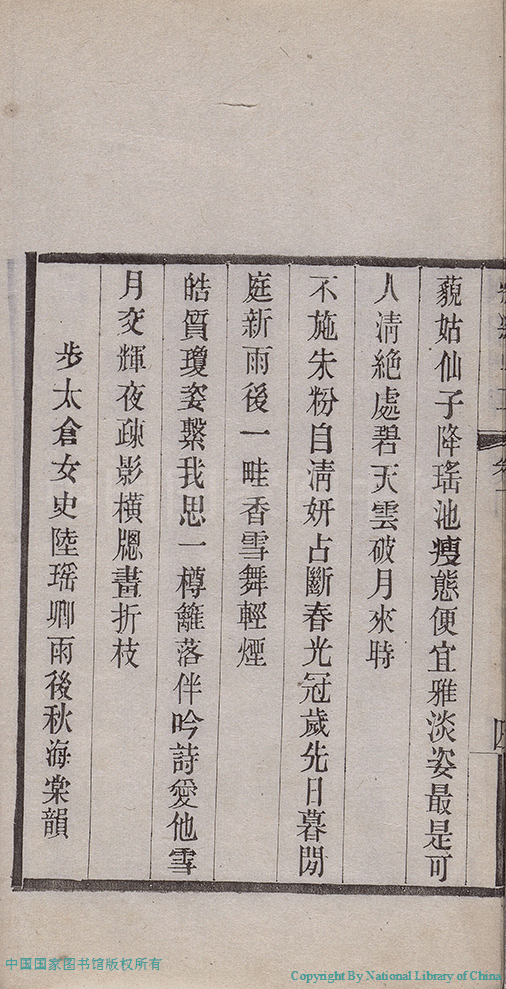 藐姑仙子降瑤池瘦態便宜雅淡姿最是可
人清絕處碧天雲破月來時
不施朱粉自清妍占斷春光冠歲先日暮閒
庭新雨後一畦香雪舞輕煙
皓質瓊姿繫我思一樽籬落伴吟詩愛他雪
月交輝夜疎影橫牕畫折枝
步太倉女史陸瑤卿雨後秋海棠韻
中国国家图书馆版权所有
Copyright By National Library of China